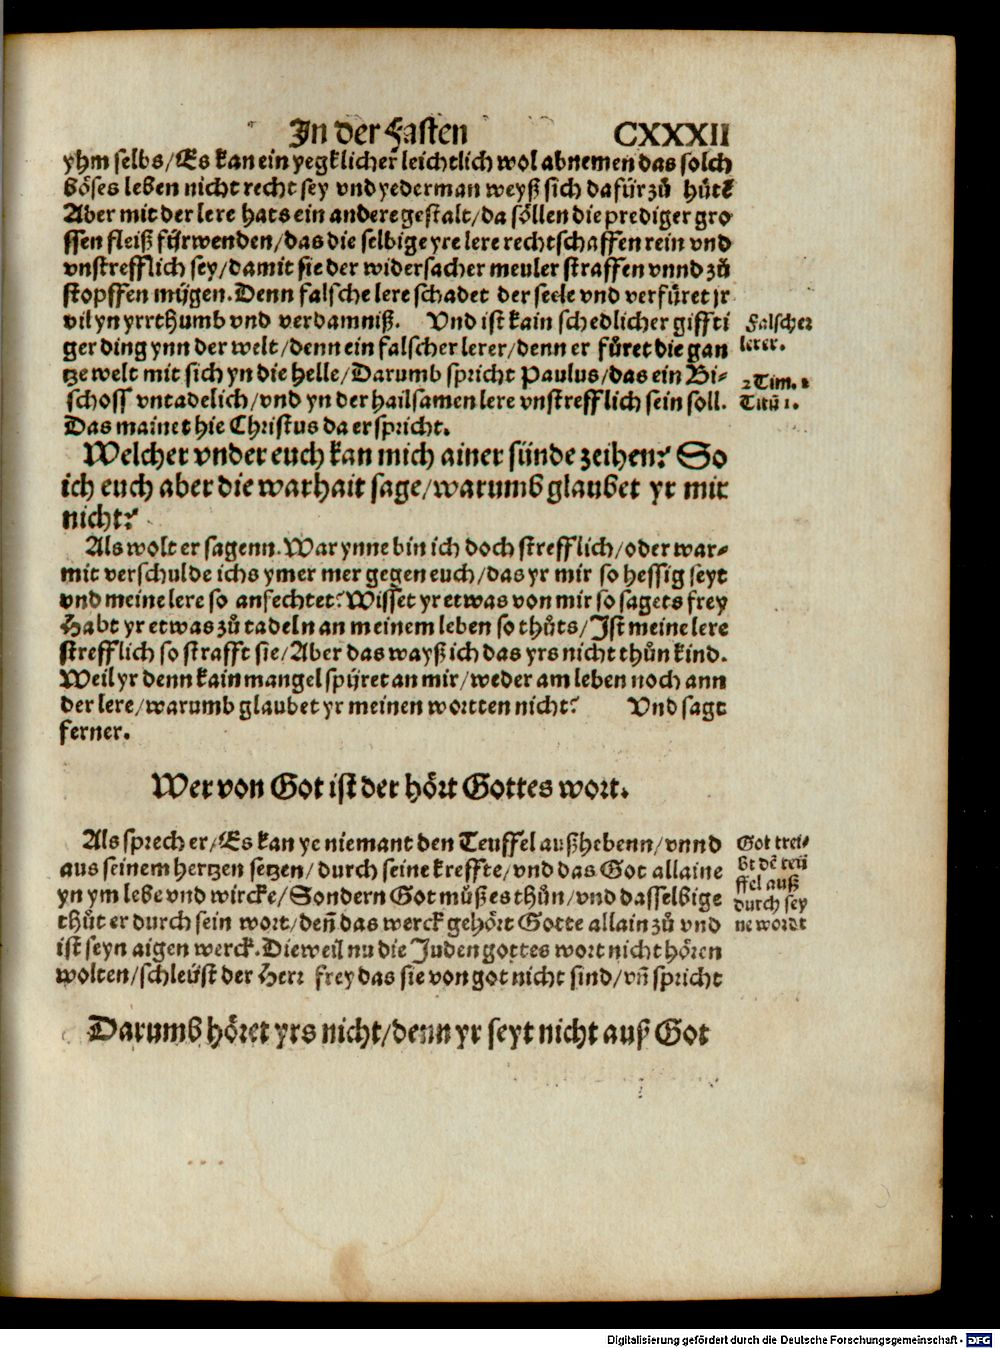 In der Fasten CXXXII
yhm selbs/Es kan ein yegklicher leichtlich wol abnemen das solch
böses leben nicht recht sey vnd yederman weyß sich dafür zů hütē
Aber mit der lere hats ein andere gestalt/da söllen die prediger gro
ssen fleiß fürwenden/das die selbige yre lere rechtschaffen rein vnd
vnstrefflich sey/damit sie der widersacher meuler straffen vnnd zů
stopffen mügen. Denn falsche lere schadet der seele vnd verfüret jr
vil yn yrrthumb vnd verdamniß. Vnd ist kain schedlicher giffti
ger ding ynn der welt/denn ein falscher lerer/denn er füret die gan
tze welt mit sich yn die helle/Darumb spricht Paulus/das ein Bi-
schoff vntadelich/vnd yn der hailsamen lere vnstrefflich sein soll.
Das mainet hie Christus da er spricht.
Falscher
lerer.
2 Tim. 2
Titū 1.
Welcher vnder euch kan mich ainer sünde zeihen? So
ich euch aber die warhait sage/warumb glaubet yr mir
nicht?
Als wolt er sagenn. War ynne bin ich doch strefflich/oder war-
mit verschulde ichs ymer mer gegen euch/das yr mir so hessig seyt
vnd meine lere so anfechtet? Wisset yr etwas von mir so sagets frey
Habt yr etwas zů tadeln an meinem leben so thůts/Ist meine lere
strefflich so strafft sie/Aber das wayß ich das yrs nicht thůn kind.
Weil yr denn kain mangel spüret an mir/weder am leben noch ann
der lere/warumb glaubet yr meinen wortten nicht? Vnd sagt
ferner.
Wer von Got ist der hört Gottes wort.
Als sprech er/Es kan ye niemant den Teuffel außhebenn/vnnd
aus seinem hertzen setzen/durch seine kreffte/vnd das Got allaine
yn ym lebe vnd wircke/Sondern Got můß es thůn/vnd dasselbige
thůt er durch sein wort/deñ das werck gehört Gotte allain zů vnd
ist seyn aigen werck. Dieweil nu die Juden gottes wort nicht hören
wolten/schleüst der Herr frey das sie von got nicht sind/vñ spricht
Got trei-
bt dē teü
ffel auß
durch sey
ne wordt
Darumb höret yrs nicht/denn yr seyt nicht auß Got
Digitalisierung gefördert durch die Deutsche Forschungsgemeinschaft - DFG